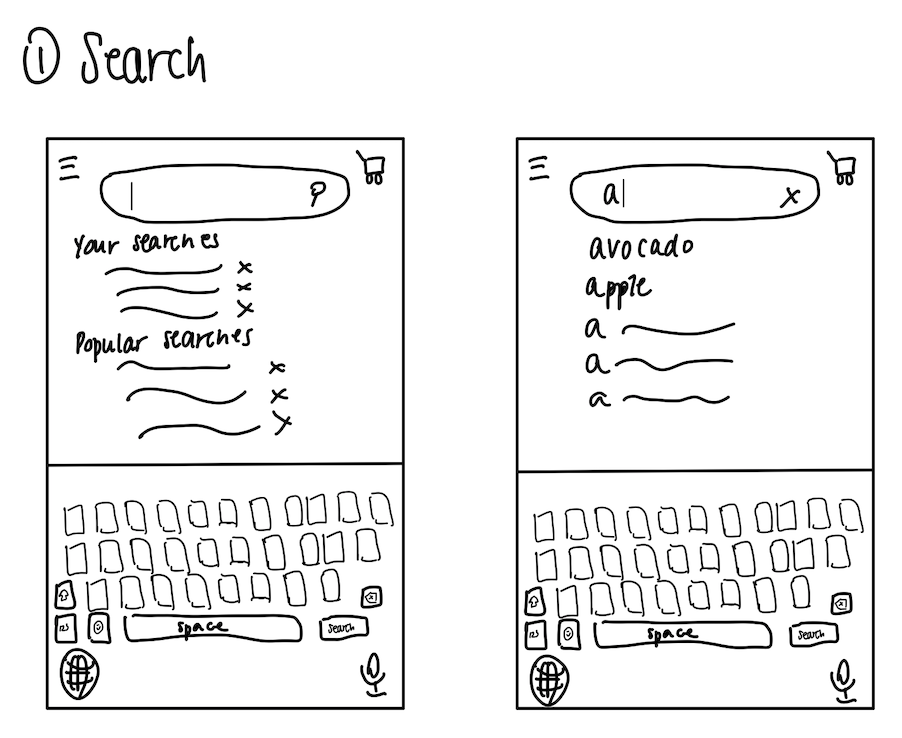 ① Search
Your searches
x
x
x
Popular searches
x
x
x
123
space
search
a
x
avocado
apple
a
a
a
123
space
search